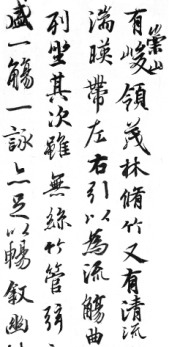 有崇山峻領茂林脩竹又有清流
湍暎帶左右引以為流觴曲
列坐其次雖無絲竹管弦
盛一觴一詠亦足以暢叙幽